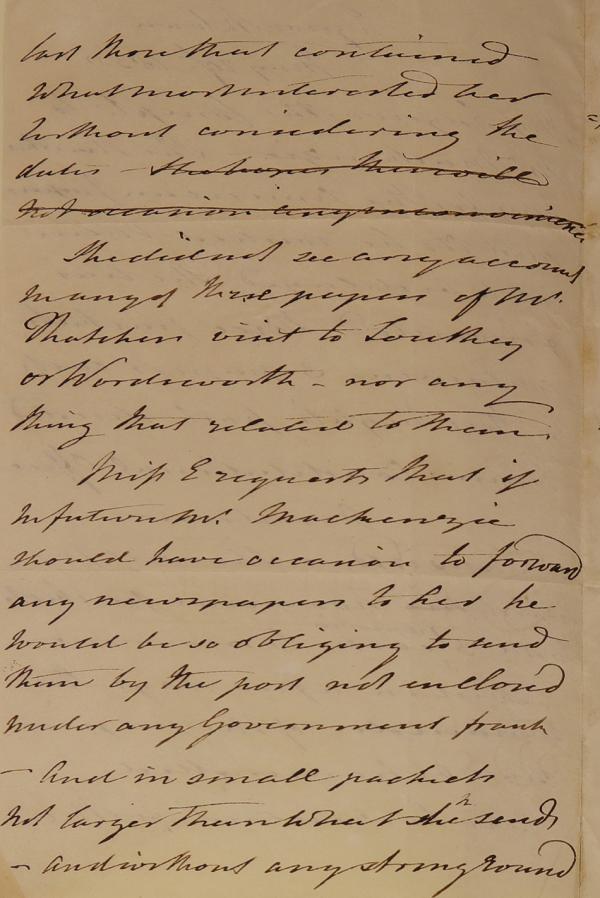 last those that contained
what most interested her
without considering the
dates - She hopes this will
not occasion any inconvenience
She did not see any account
in any of these papers of Mr.
Thatchers visit to Southey
or Wordsworth - nor any
thing that related to them.
Miss E requests that if
in future Mr. Mackenzie
should have occasion to forward
any newspapers to her he
would be so obliging to send
them by the post not enclosed
under any Government frank
- and in small packets
not larger than what she sends
- and without any string round